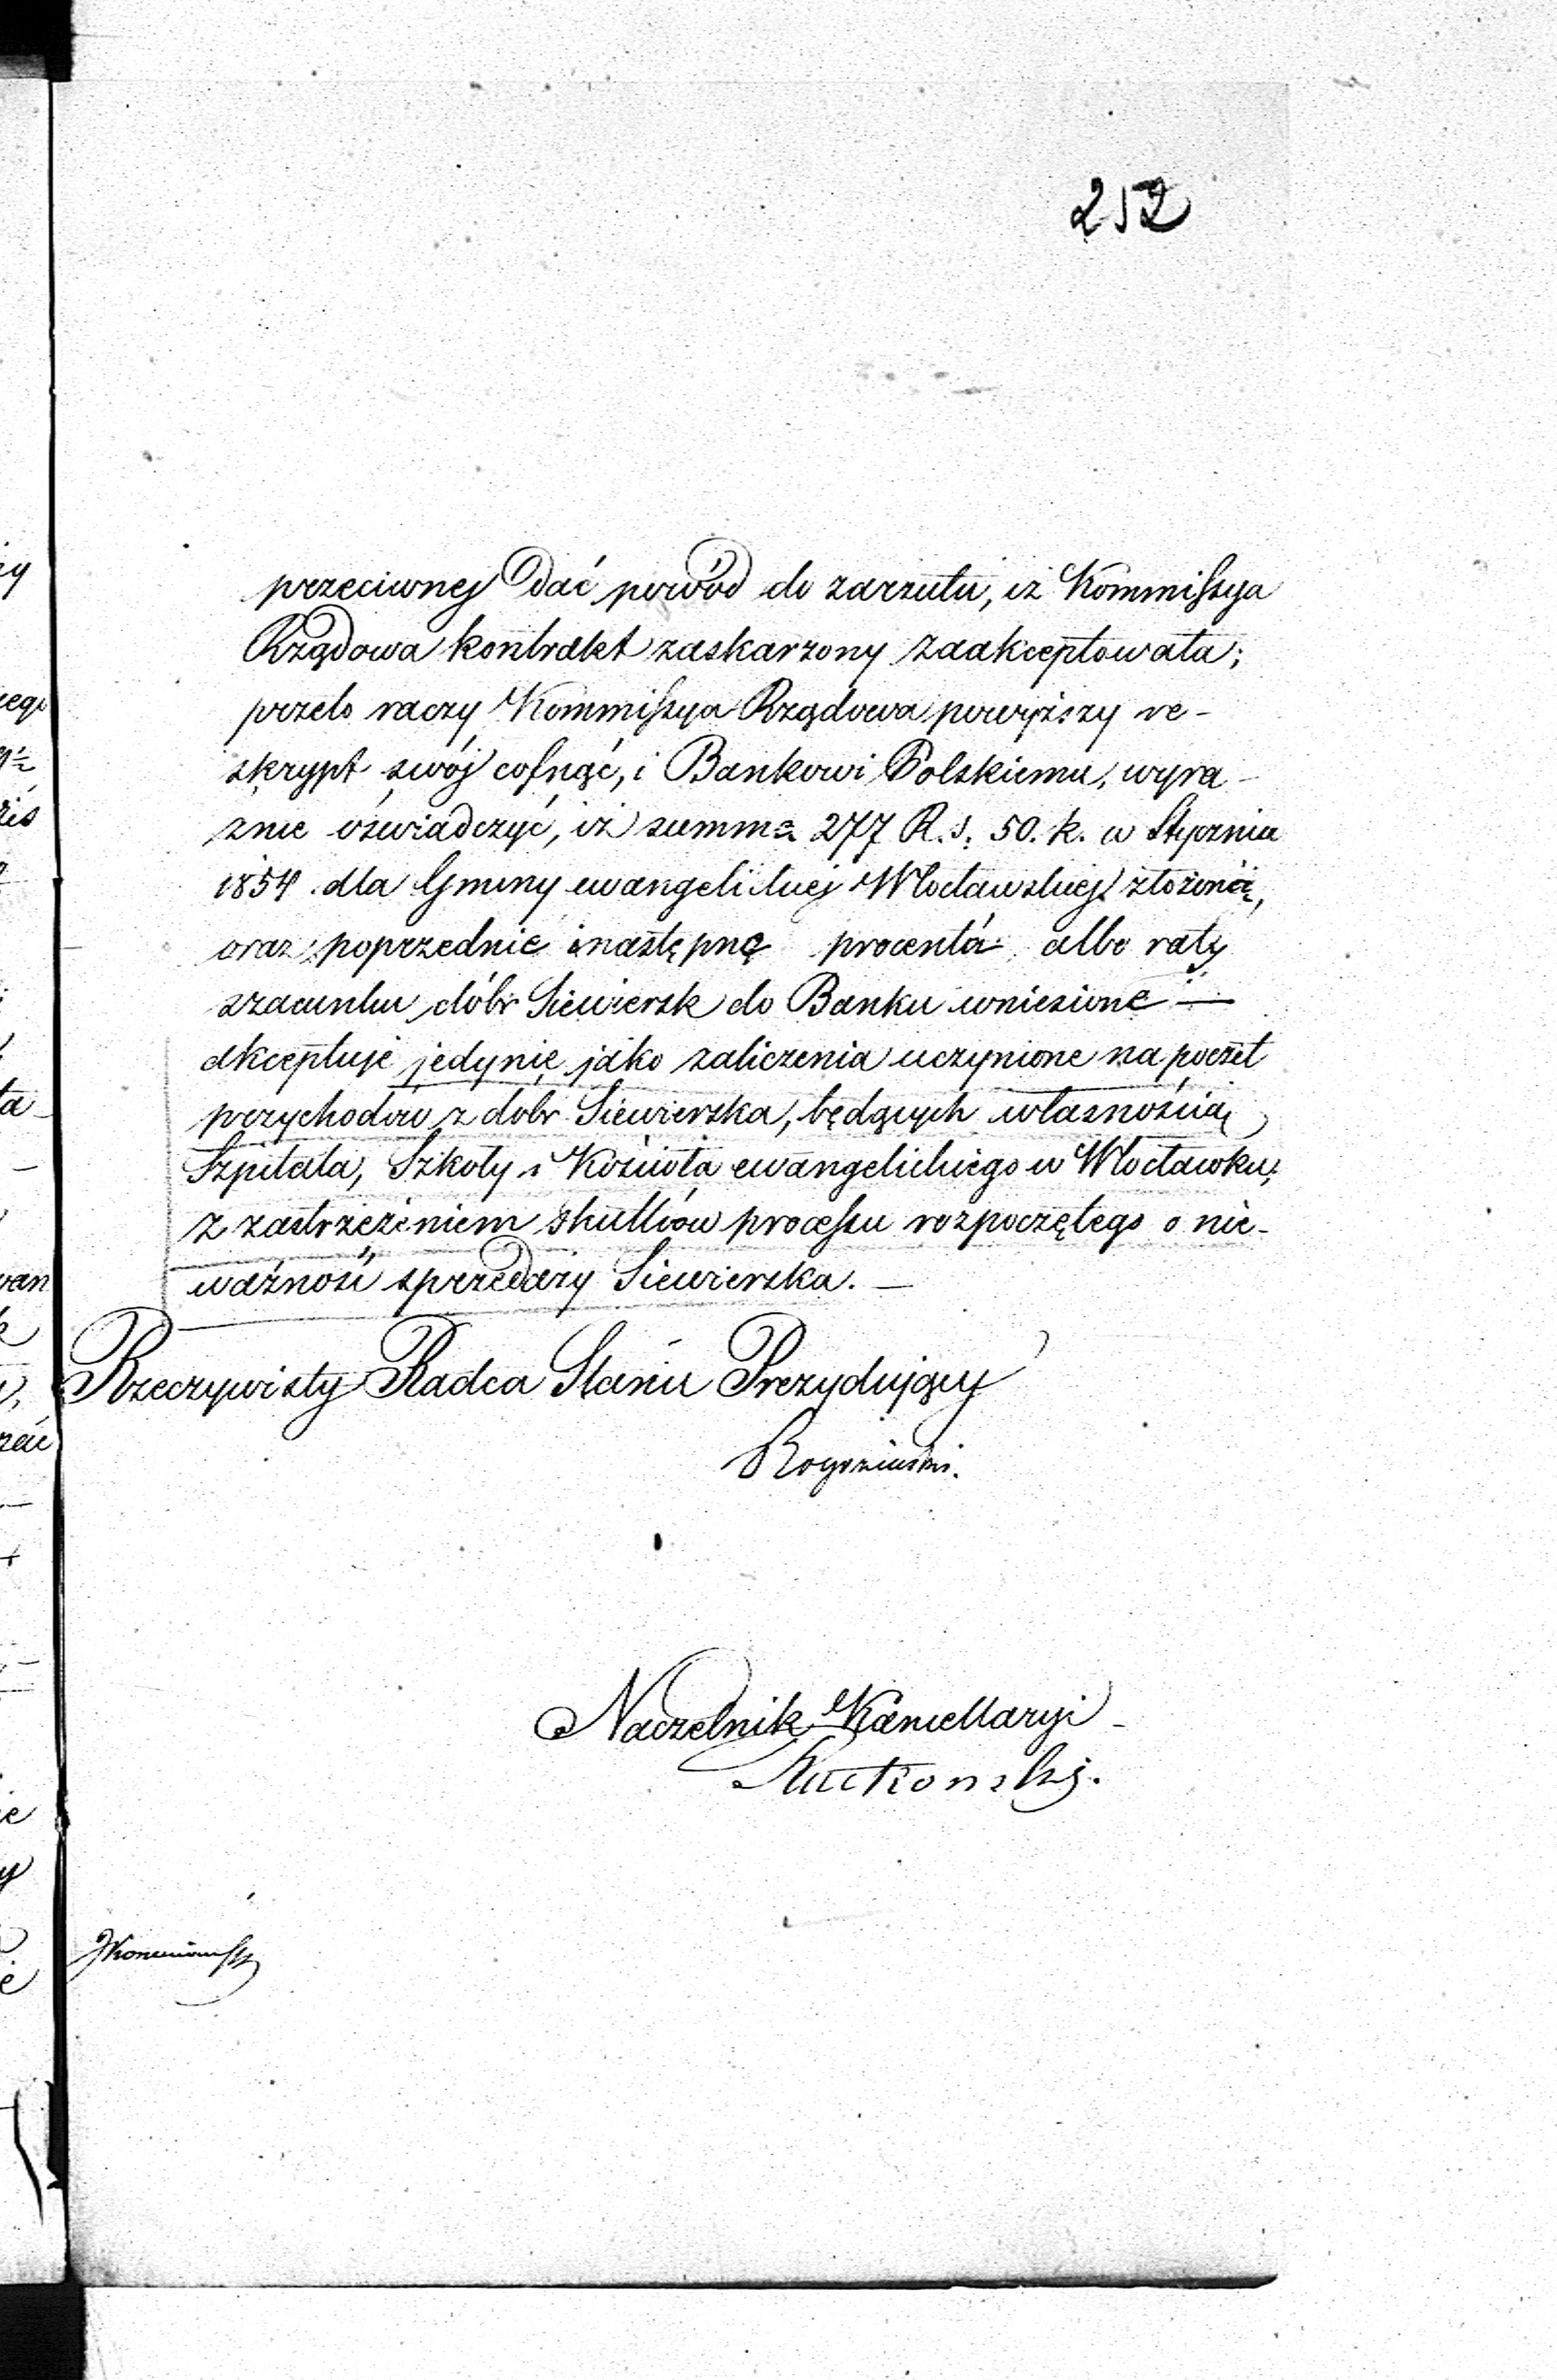 252
przeciwnej dać powód do zarzutu, iż Kommissya
Rządowa kontrakt zaskarżony zaakceptowała;
przeto raczy Kommissya Rządowa powyższy re-
skrypt swój cofnąć, i Bankowi Polskiemu, wyra-
znie oświadczyć, iż summę 277 R. s. 50. k. w Styczniu
1854 dla Gminy ewangelickiej Włocławskiej złożoną,
oraz poprzednie i następne procenta albo raty
szacunku dóbr Siewiersk do Banku wniesione —
akceptuje jedynie jako zaliczenia uczynione na poczet
przychodów z dóbr Siewierska, będących własnością
Szpitala, Szkoły i Kościoła ewangelickiego w Włocławku,
z zastrzeżeniem skutków processu rozpoczętego o nie-
ważność sprzedaży Siewierska. —
Rzeczywisty Radca Stanu Prezydujący
Rogoziński.
Naczelnik Kancellaryi